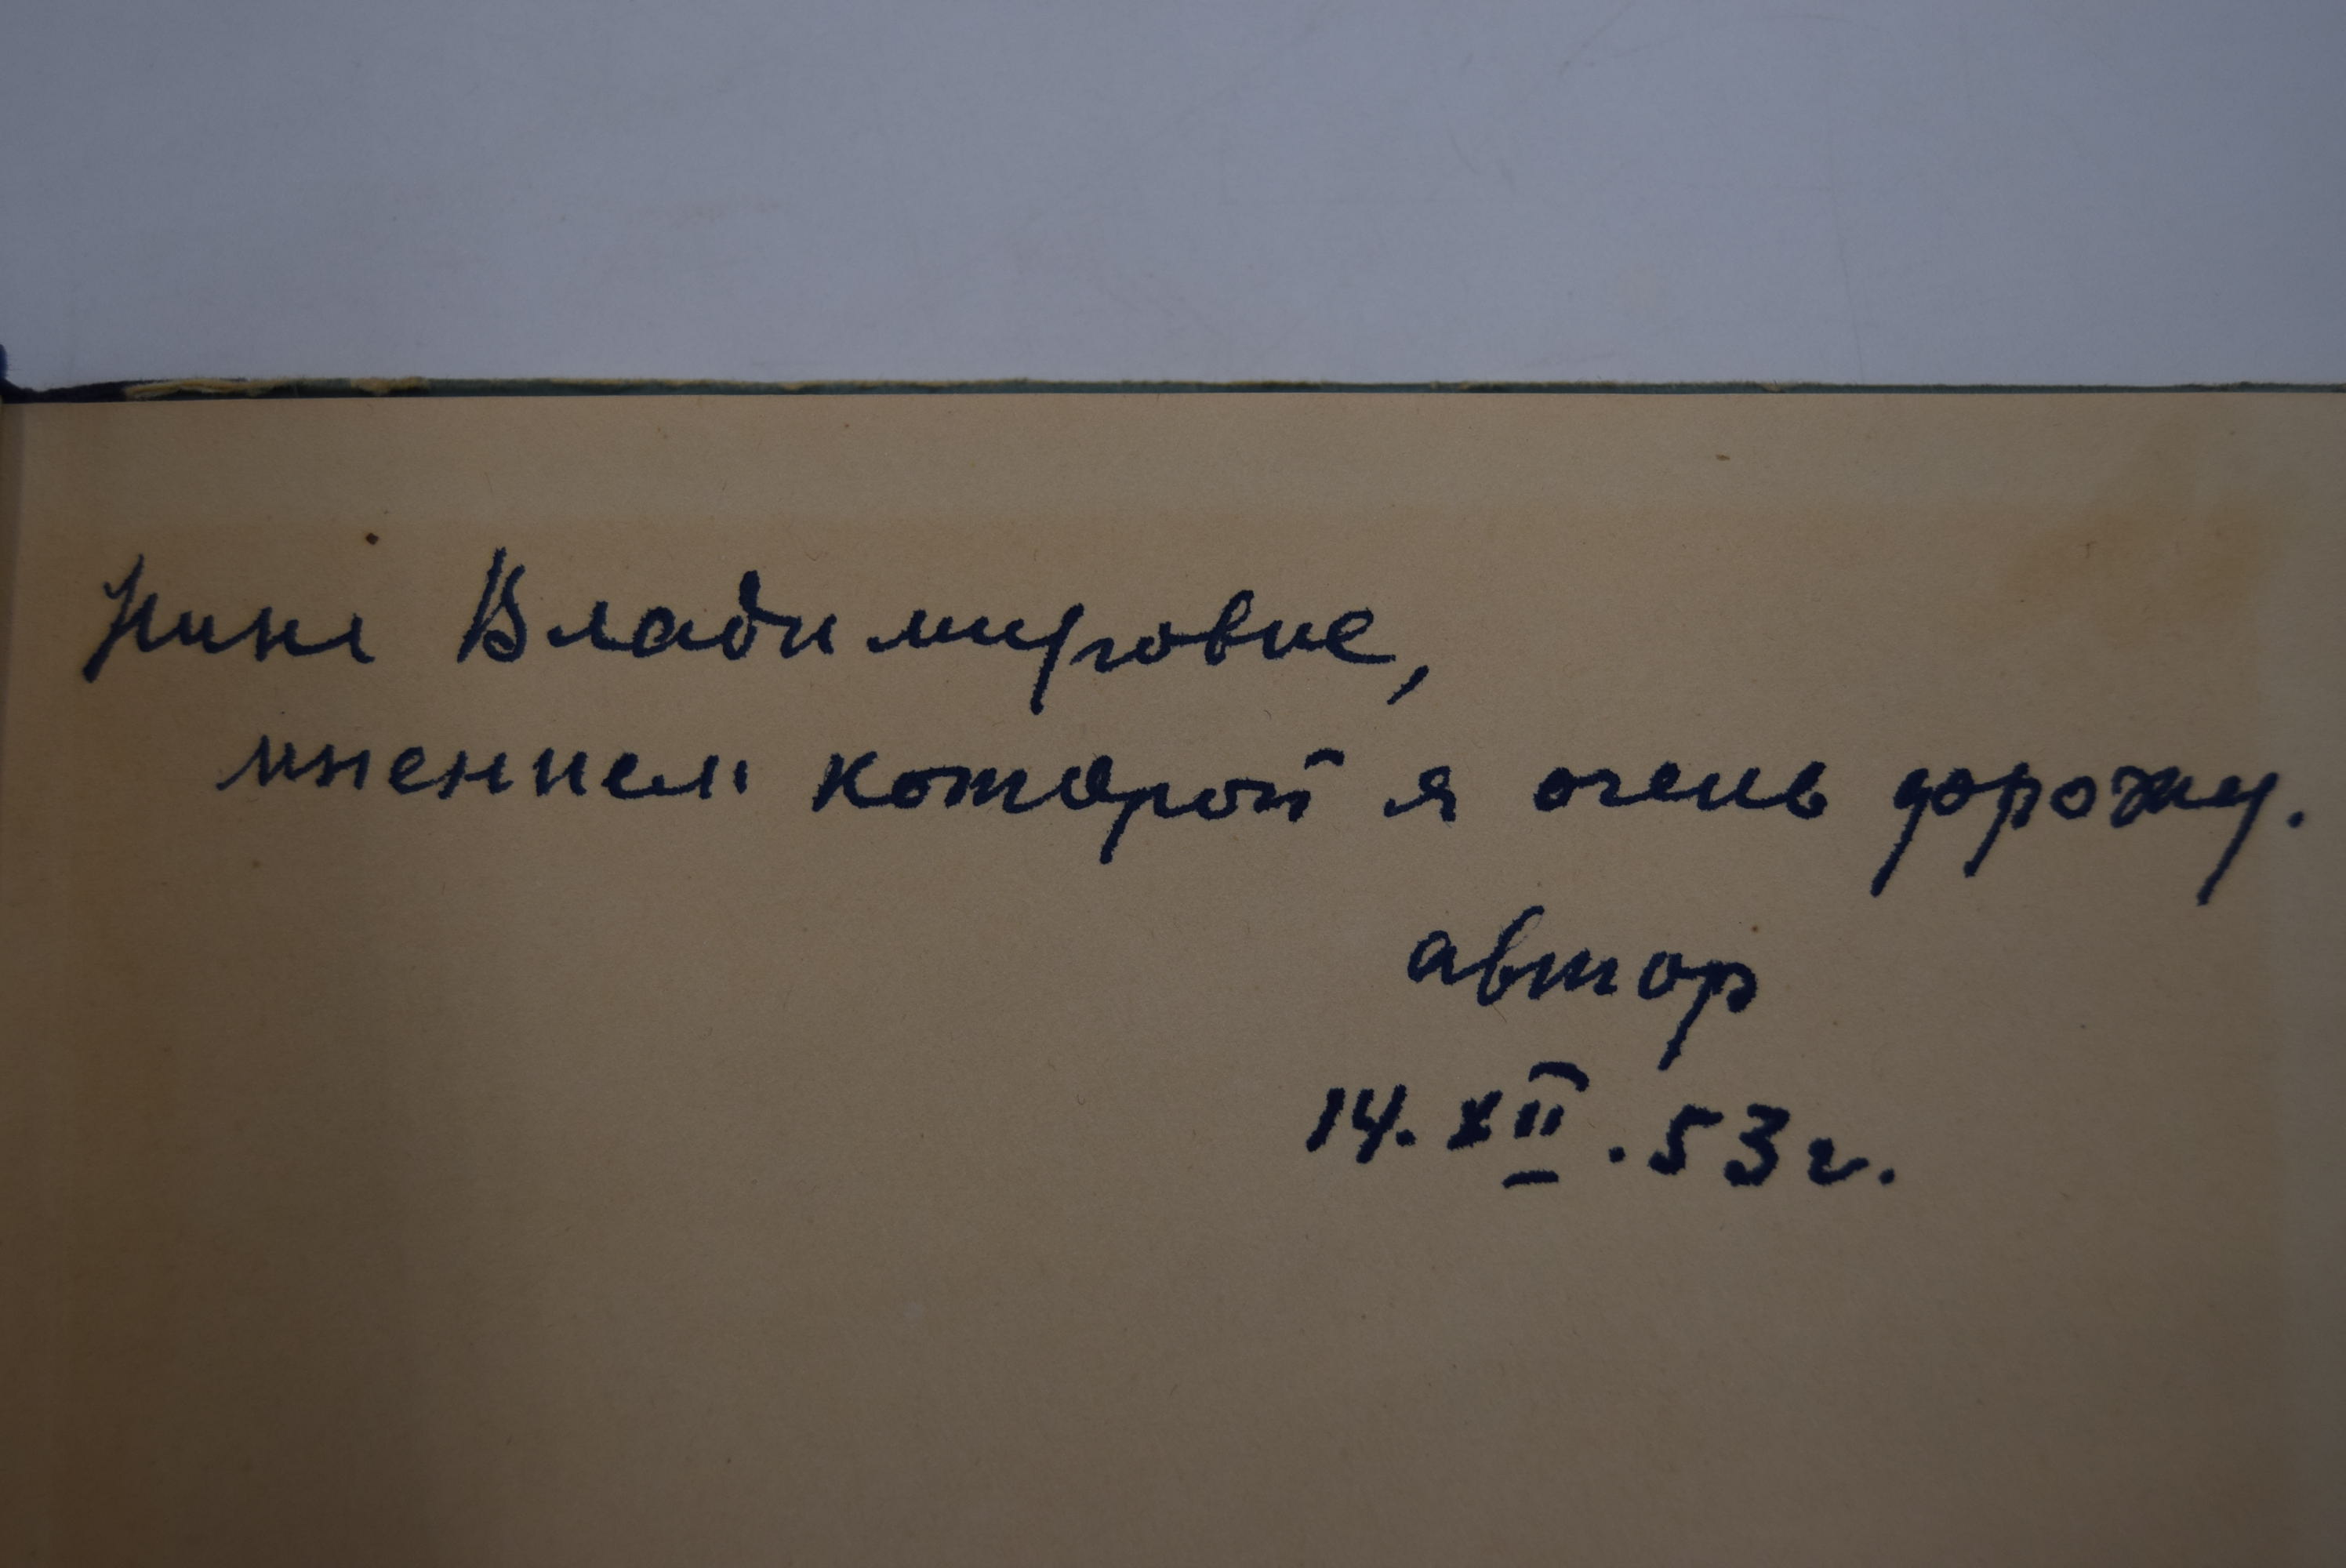 Нине Владимировне,
мнением которой я очень дорожу.
автор
14. XII. 53 г.